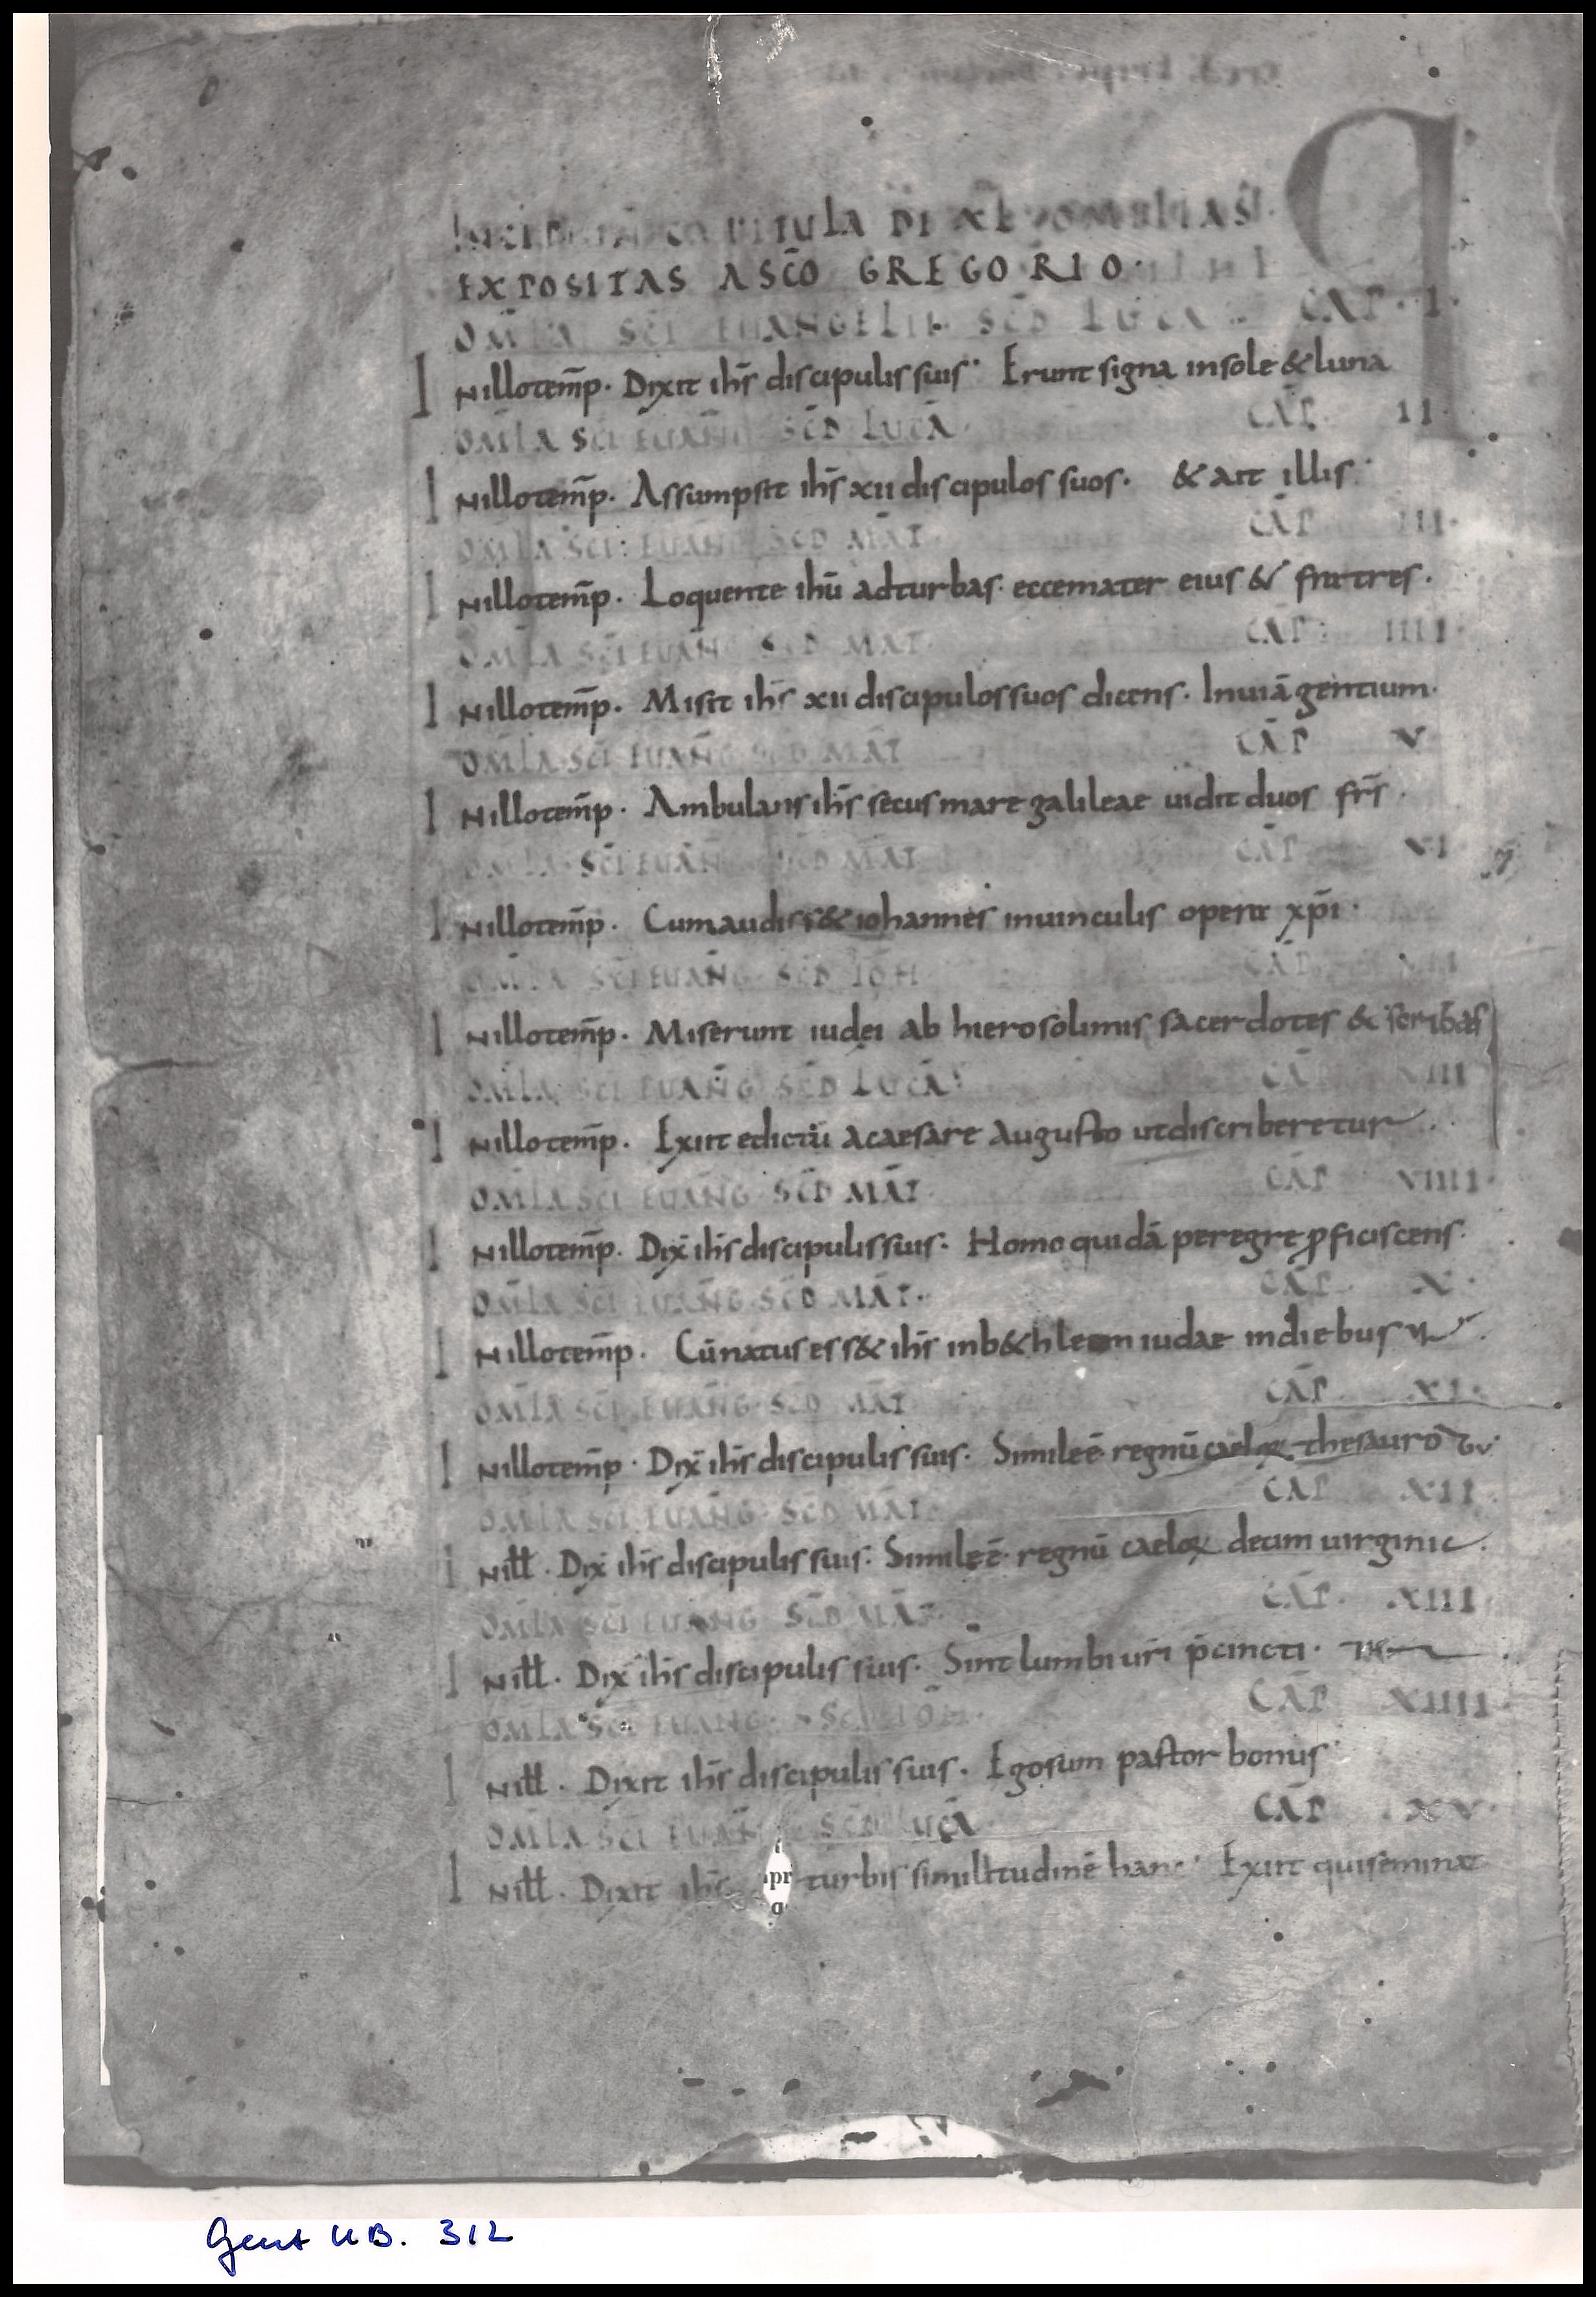 INCIPIUNT CAPITULA DE XL OMELIAS
EXPOSITAS A SC̄O GREGORIO·
OML̄A SCI EUANGELII· SCD̄ LUCA CAP· I·
INillotem̄p· Dixit ih̄s discipulis suis· Erunt signa insole & luna
OML̄A SCI EUAN̄G SCD̄ LUCĀ· CAP̄ II
INillotem̄p· Assumpsit ih̄s xii discipulos suos· & ait illis·
OML̄A SCI EUAN̄G SCD̄ MAT̄· CAP̄ III·
INillotem̄p· Loquente ihū adturbas· eccemater eius & fratres·
OML̄A SCI EUAN̄G SCD̄ MAT̄· CAP̄ IIII·
INillotem̄p· Misit ih̄s xii discipulossuos dicens· Inuiā gentium·
OML̄A SCI EUAN̄G SCD̄ MAT̄ CAP̄ V
INillotem̄p· Ambulans ih̄s secusmare galileae uidit duos fr̄s·
OML̄A SCI EUAN̄G SCD̄ MAT̄ CAP̄ VI
INillotem̄p· Cumaudiss& iohannes inuinculis opera xp̄i·
OML̄A SCI EUAN̄G SCD̄ IOH̄ CAP̄ VII
INillotem̄p· Miserunt iudei ab hierosolimis sacerdotes & scribas
OML̄A SCI EUAN̄G SCD̄ LUCĀ· CAP̄ VIII
INillotem̄p· Exiit edictū acaesare augusto utdiscriberetur
OML̄A SCI EUAN̄G SCD̄ MAT̄ CAP̄ VIIII·
INillotem̄p· Dix̄ ih̄s discipulissuis· Homo quidā peregre ꝓficiscens·
OML̄A SCI EUAN̄G SCD̄ MAT̄· CAP̄ X·
INillotem̄p· Cūnatus ess& ih̄s inb&hleem iudae indiebus
OML̄A SCI EUAN̄G SCD̄ MAT̄ CAP̄ XI·
INillotem̄p· Dix̄ ih̄s discipulis suis· Simile ē regnū caeloꝝ thesauro
OML̄A SCI EUAN̄G SCD̄ MAT̄ CAP̄ XII
INiłł· Dix̄ ih̄s discipulis suis· Simile ē regnū caeloꝝ decim uirginic
OML̄A SCI EUAN̄G SCD̄ MAT̄· CAP̄· XIII
INiłł· Dix̄ ih̄s discipulis suis· Sint lumbi ur̄i p̄cincti·
OML̄A SCI EUAN̄G· SCD̄ IOH̄· CAP̄ XIIII
INiłł· Dixit ih̄s discipulis suis· Ego sum pastor bonus·
OML̄A SCI EUAN̄G SCD̄ LUCĀ CAP̄ XV·
INiłł· Dixit ih̄s turbis similitudinē hanc· Exiit quiseminat
Gent UB. 312